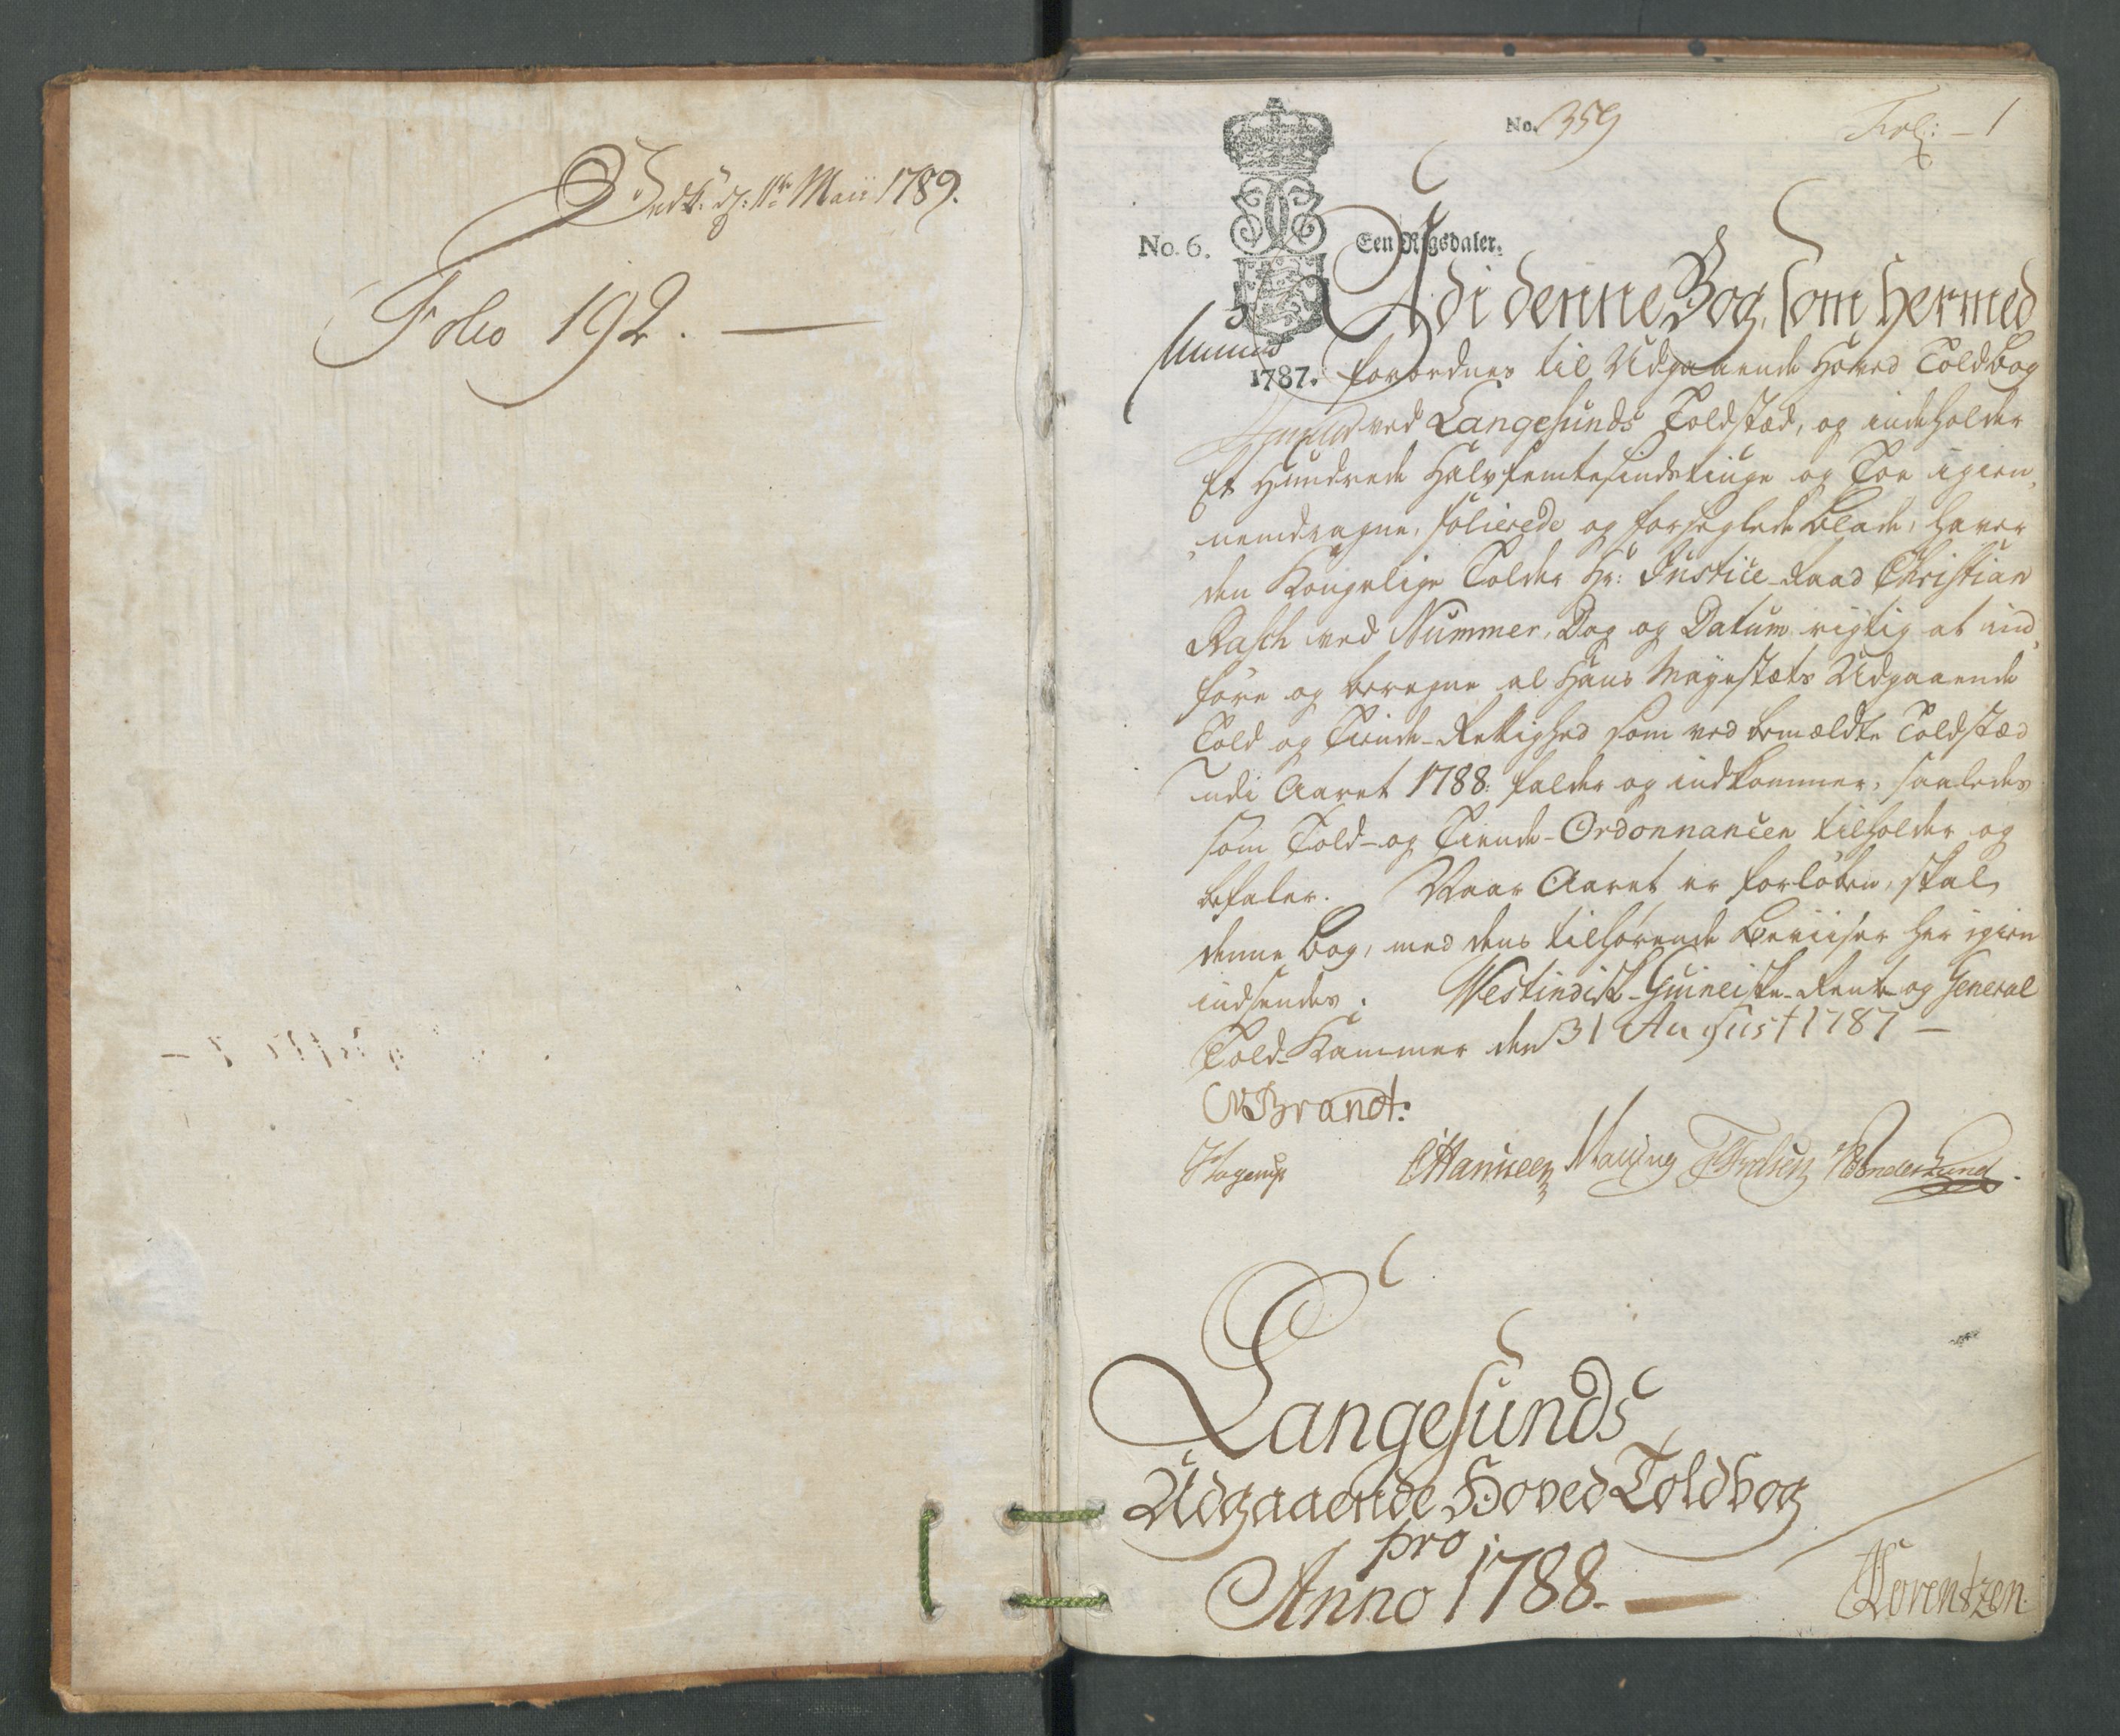 Indk: d: 11te Maii 1789.
Folio 192. —
No. 359
Fol: – 1
No. 6.
Een Rigsdaler.
1787.
Udi denne Bog, som hermed
forordnes til Udgaaende Hoved Toldbog
ved Langesunds Toldstæd, og indeholder
Et Hundrede Halvfemtesindstiuge og Toe igien,
nemdragne, folierede og forseglede Blade, haver
den Kongelige Tolder Hr: Justice-Raad Christian
Rasch ved Nummer, Dag og Datum rigtig at ind,
føre og beregne al Hans Mayestæts Udgaaende
Told og Tiende-Rettighed som ved bemældte Toldstæd
udi Aaret 1788: falder og indkommer, saaledes
som Told- og Tiende-Ordonnancen tilholder og
befaler. Naar Aaret er forløben, skal
denne Bog, med dens tilhørende Beviiser her igien
indsendes. Westindisk-Guineiske-Rente og General
Told-Kammer den 31 August 1787 —
Brandt:
Hagerup Malling
Langesunds
Udgaaende Hoved Toldbog
pro
Anno 1788. —
Lorentzen.